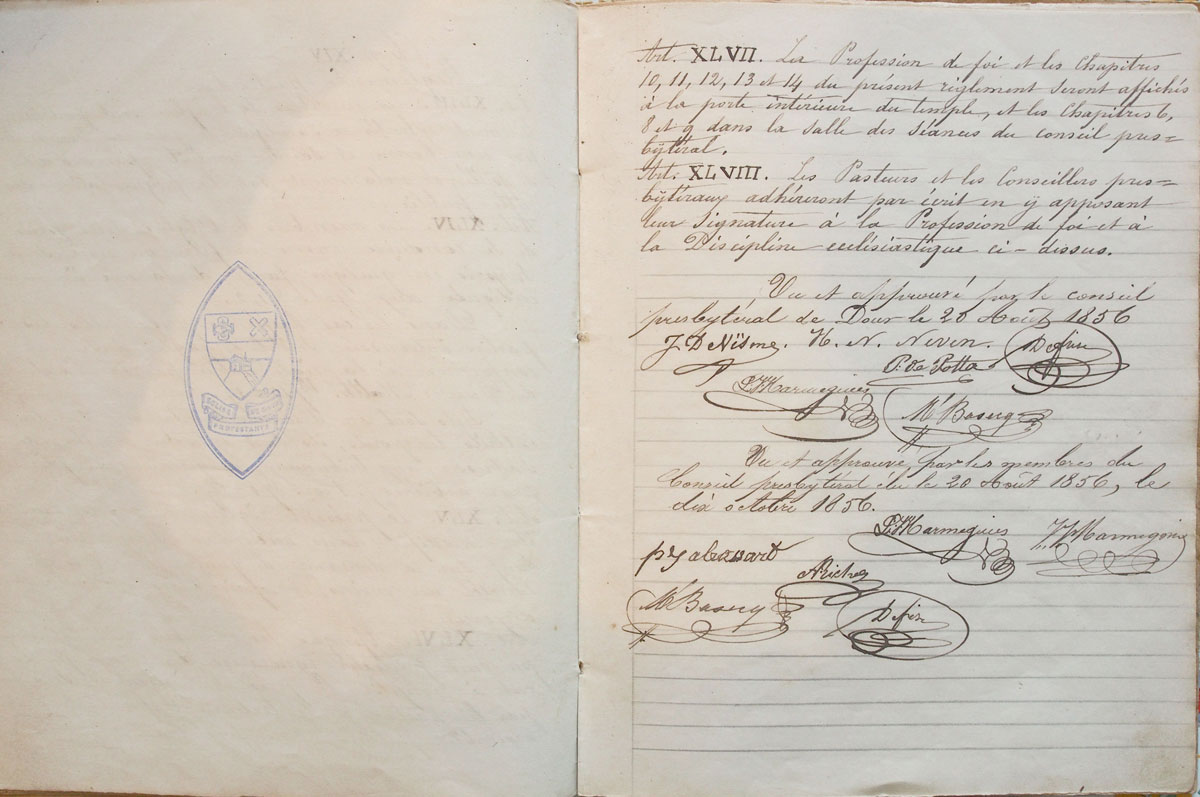 EGLISE DE DOUR
PROTESTANTE
Art. XLVII. La Profession de foi et les Chapitres
10, 11, 12, 13 et 14 du présent règlement seront affichés
à la porte intérieure du temple, et les Chapitres 6,
8 et 9 dans la salle des séances du conseil pres=
bÿtéral.
Art. XLVIII. Les Pasteurs et les Conseillers pres=
bÿtéraux adhéreront par écrit en ÿ apposant
leur Signature à la Profession de foi et à
la Discipline ecclésiastique ci-dessus.
Vu et approuvé par le conseil
presbytéral de Dour le 20 Août 1856
J. D Nisme. H. N. Neven. Defise
P. De Potta
Harmegnies
M Bosucq
Vu et approuvé par les membres du
Conseil presbytéral élu le 20 Août 1856, le
dix octobre 1856.
Harmegnies Harmegnies
A Richez
M Bosucq Defise